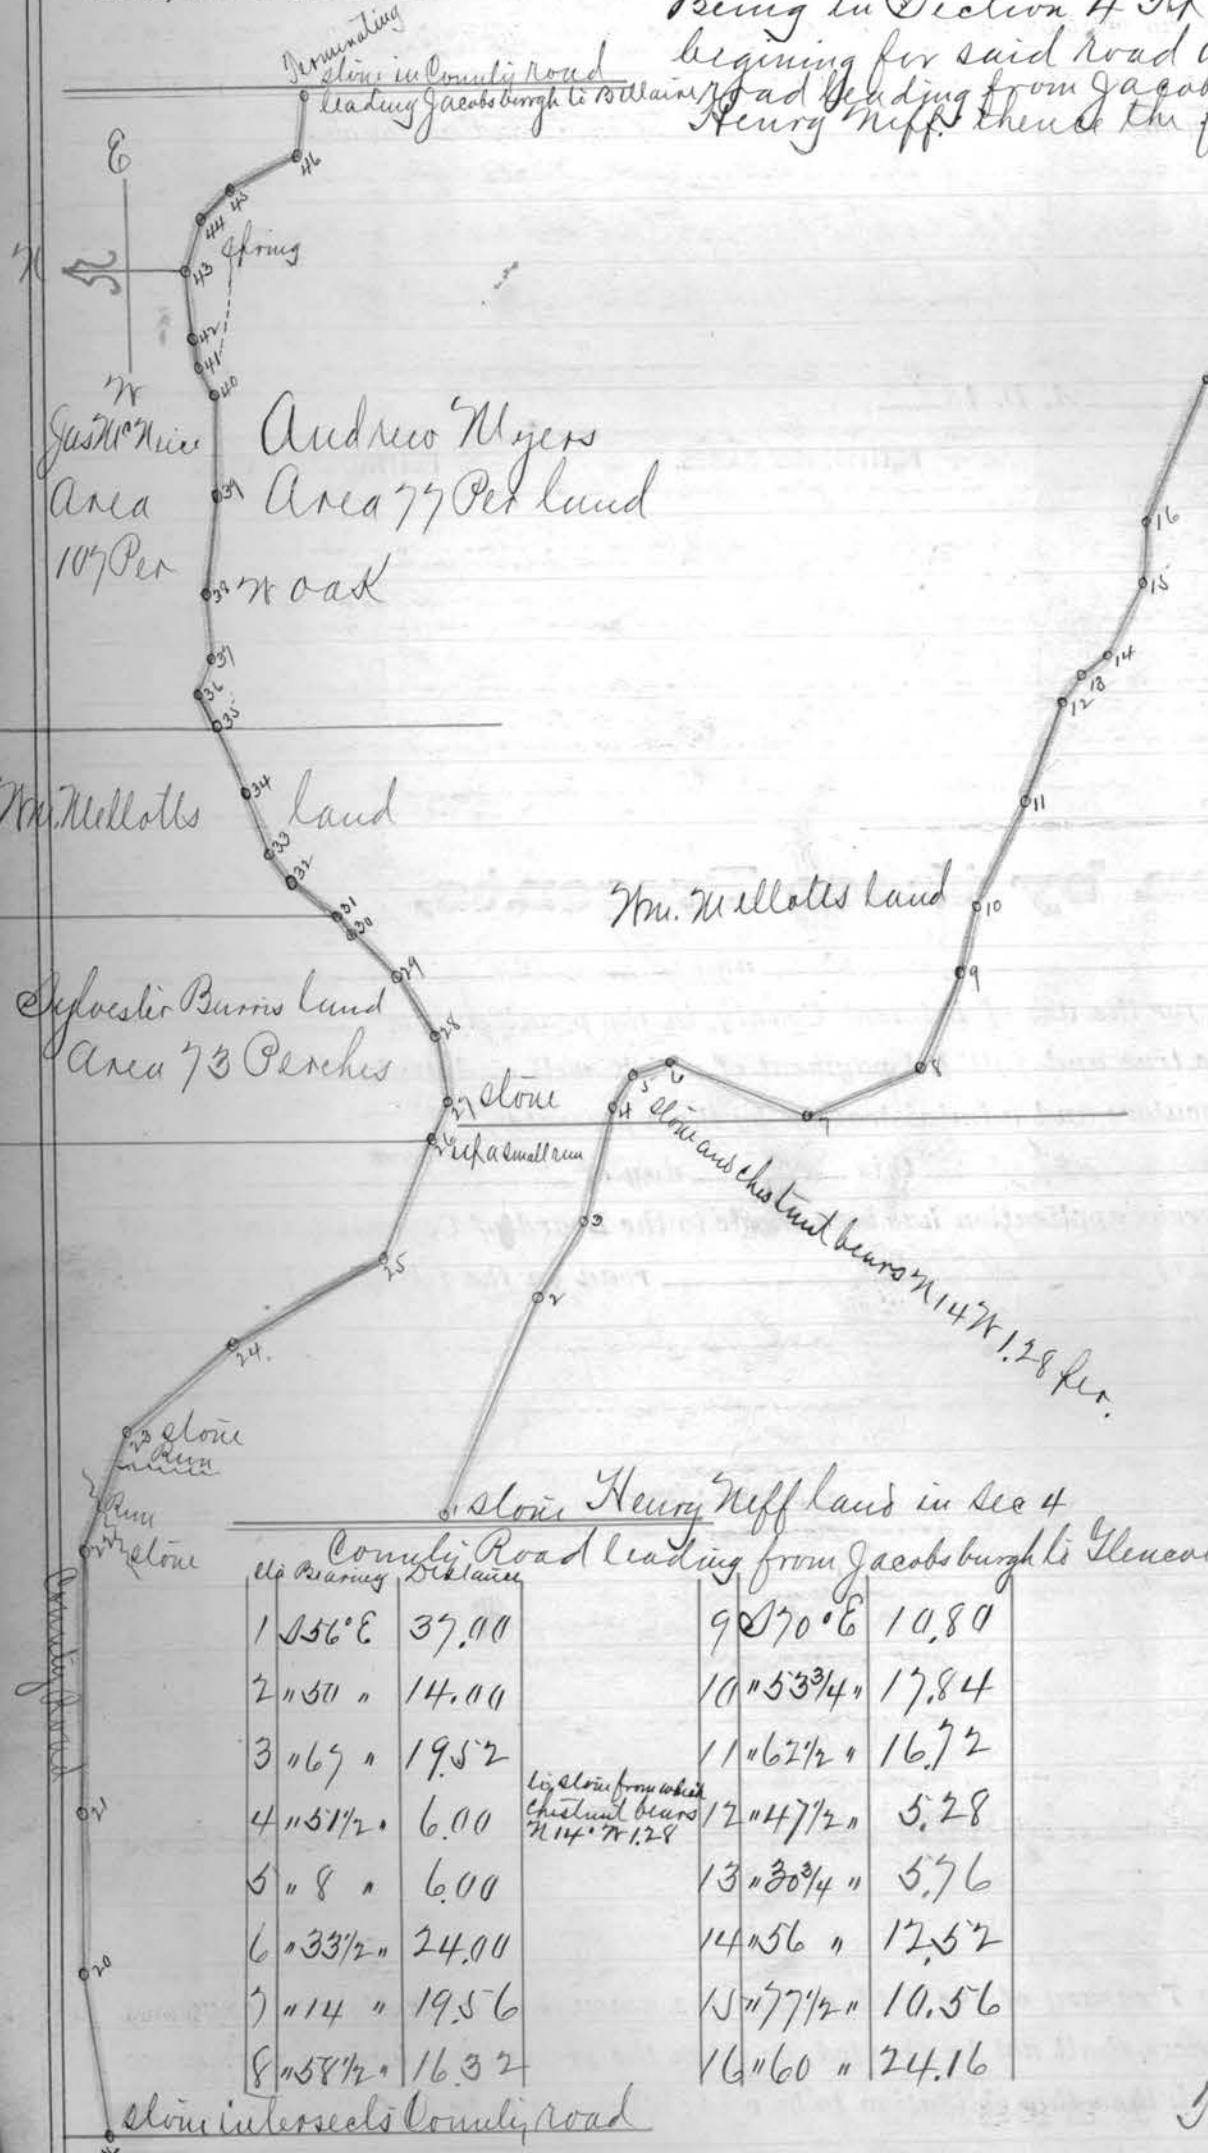 Being in Section 4
begining for said road
road leading from Jacob
Henry Neff. thence the
Terminating
stone in County road
leading Jacobsburgh to Bellaire
E
N
W
46
45
44
Spring
43
42
41
40
Jas McNeice
Area
107 Per
Andrew Myers
Area 77 Per land
39
38 W oak
37
36
35
34
Wm. Mellotts land
33
32
31
30
29
Sylvester Burris land
Area 73 Perches
28
27 stone
26 up a small run
25
24.
23 stone
Run
Run
22 stone
County Road
21
20
16
15
14
13
12
11
Wm. Mellotts land
10
9
8
7
6
5
4
stone and chestnut bears N 14 W 1.28 Per.
3
2
1 stone Henry Neff land in sec 4
County Road leading from Jacobsburgh to Glencoe
Bearing Distance
1 S56°E 37.00
2 " 50 " 14.00
3 " 67 " 19.52
4 " 51 1/2 " 6.00
to stone from which
chestnut bears
N 14° W 1.28
5 " 8 " 6.00
6 " 33 1/2 " 24.00
7 " 14 " 19.56
8 " 58 1/2 " 16.32
9 S70°E 10.80
10 " 53 3/4 " 17.84
11 " 62 1/2 " 16.72
12 " 47 1/2 " 5.28
13 " 30 3/4 " 5.76
14 " 56 " 12.52
15 " 77 1/2 " 10.56
16 " 60 " 24.16
stone intersects County road